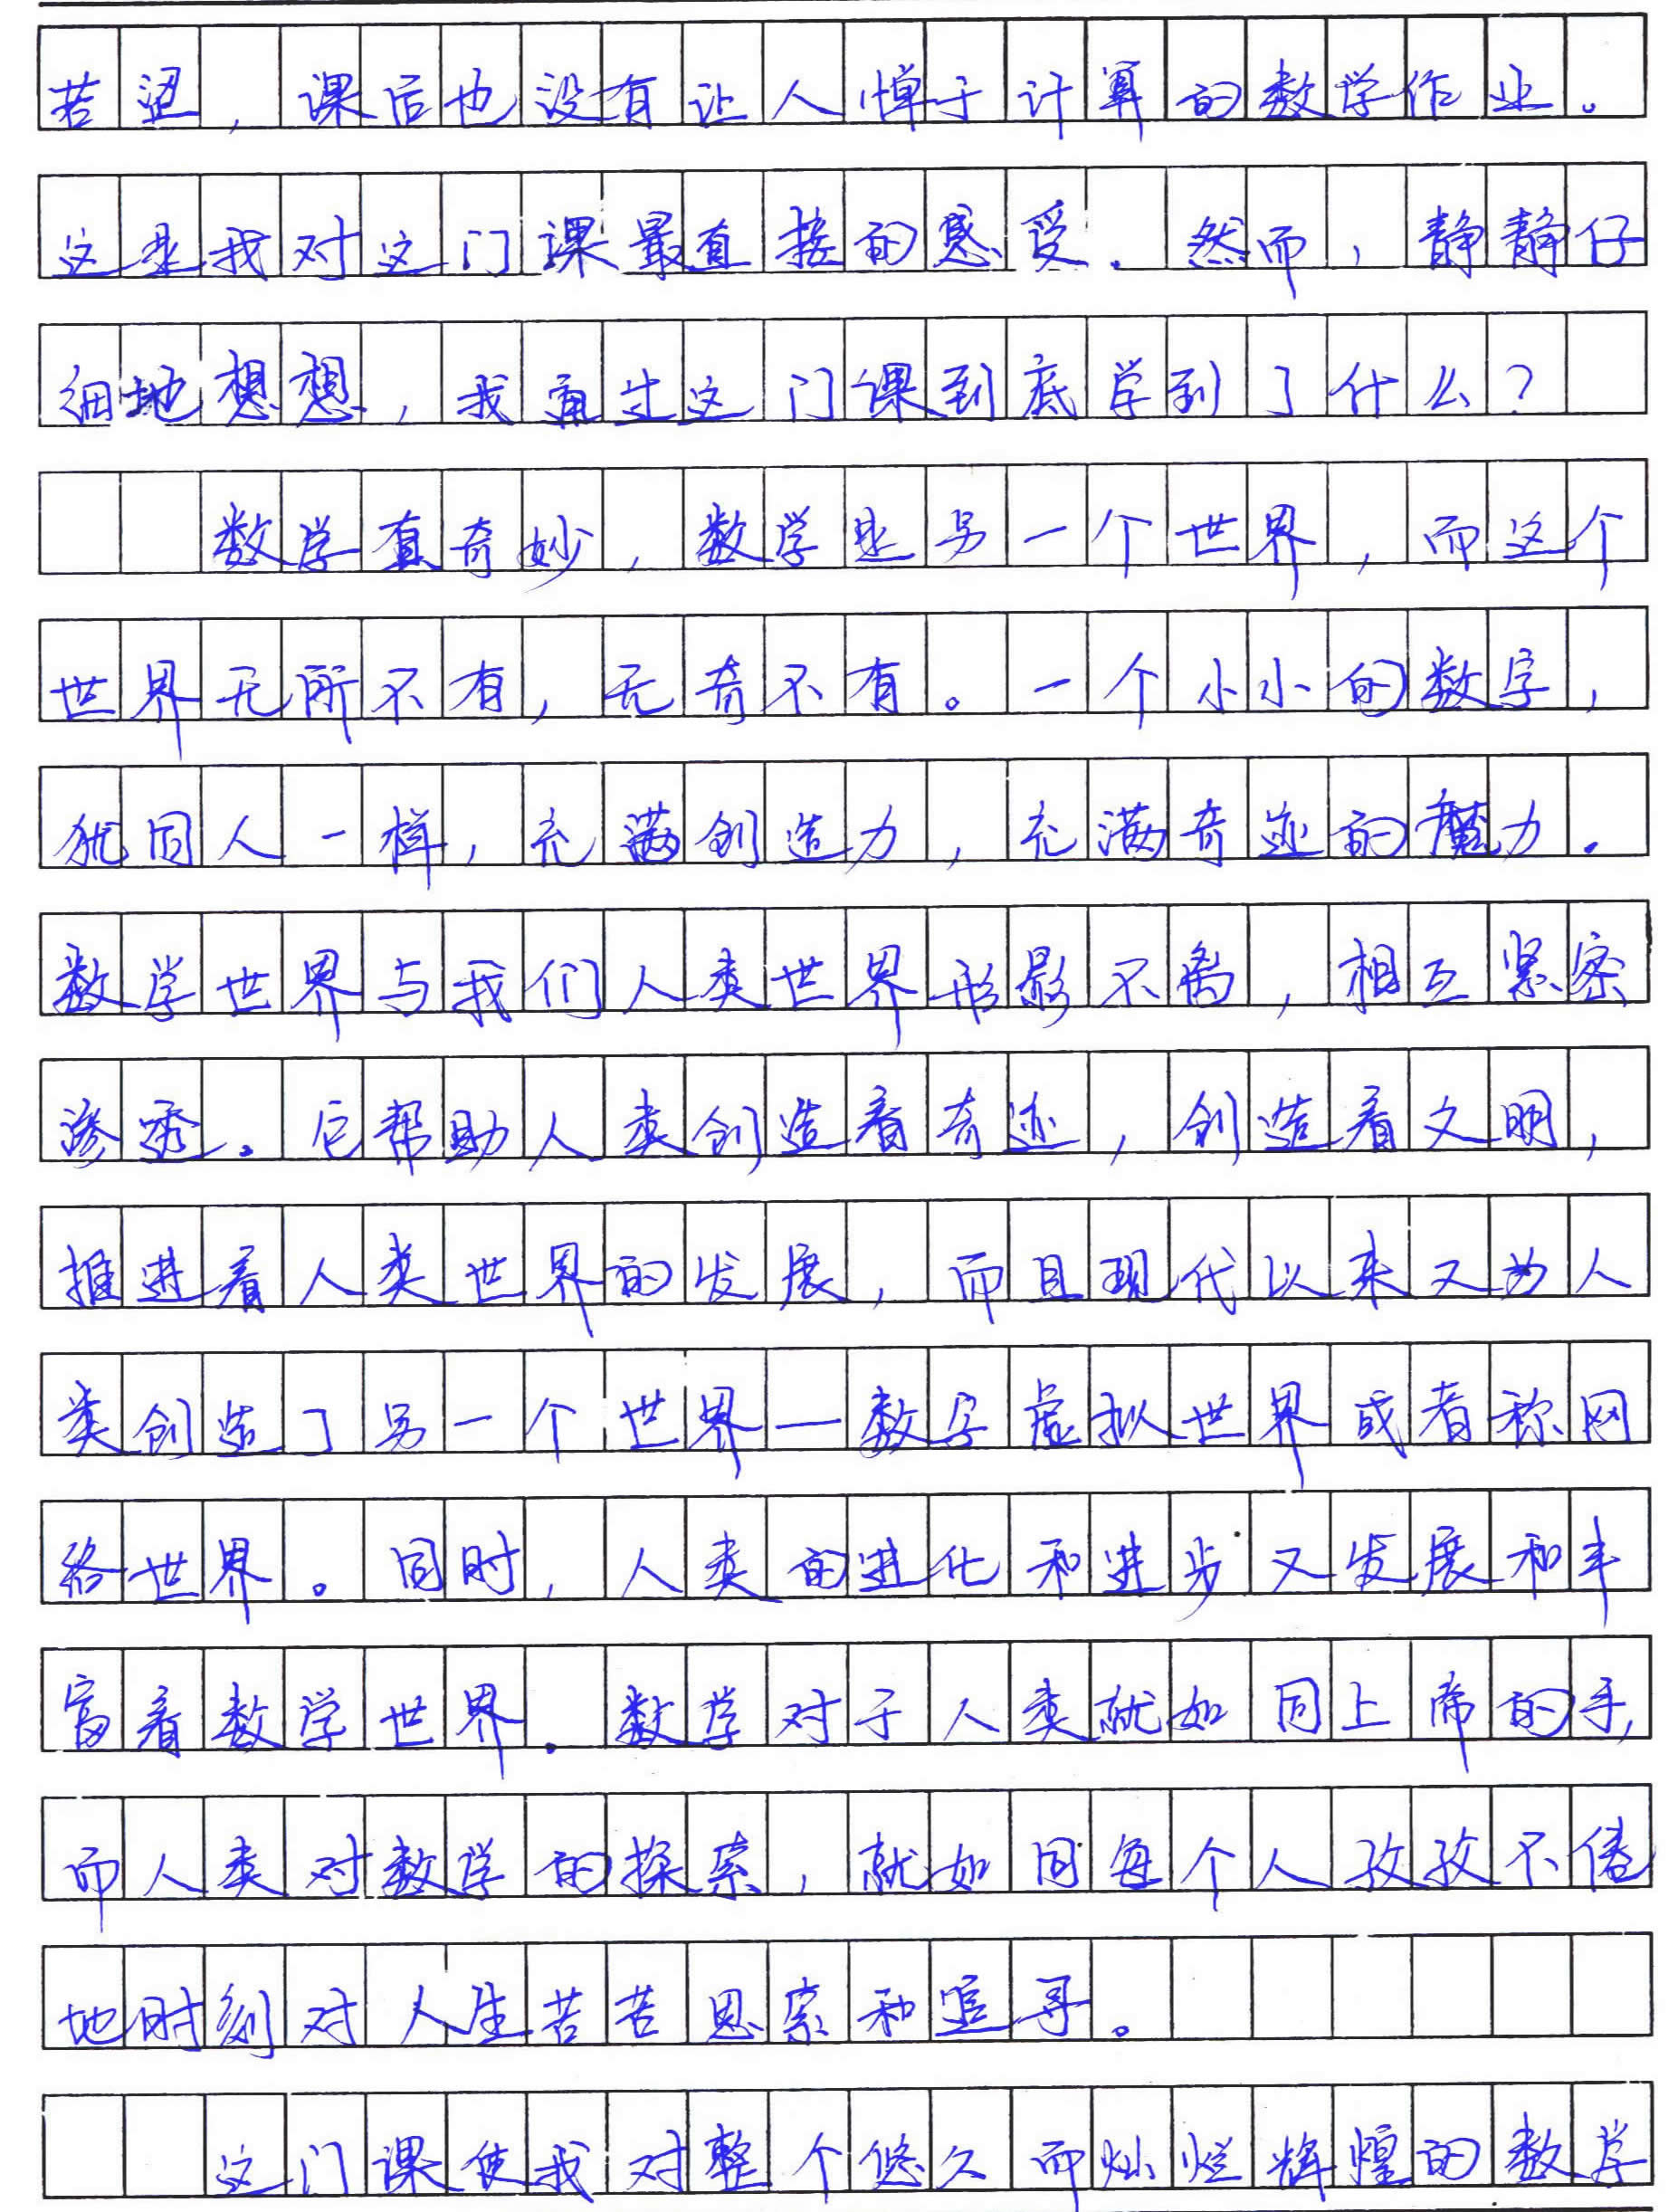 若望，课后也没有让人惮于计算的数学作业。
这是我对这门课最直接的感受.然而，静静仔
细地想想，我通过这门课到底学到了什么？
数学真奇妙，数学是另一个世界，而这个
世界无所不有，无奇不有。一个小小的数字，
犹同人一样，充满创造力，充满奇迹的魔力.
数学世界与我们人类世界形影不离，相互紧密
渗透.它帮助人类创造着奇迹，创造着文明，
推进着人类世界的发展，而且现代以来又为人
类创造了另一个世界—数字虚拟世界或者称网
络世界。同时，人类的进化和进步又发展和丰
富着数学世界.数学对于人类就如同上帝的手,
而人类对数学的探索，就如同每个人孜孜不倦
地时刻对人生苦苦思索和追寻。
这门课使我对整个悠久而灿烂辉煌的数学